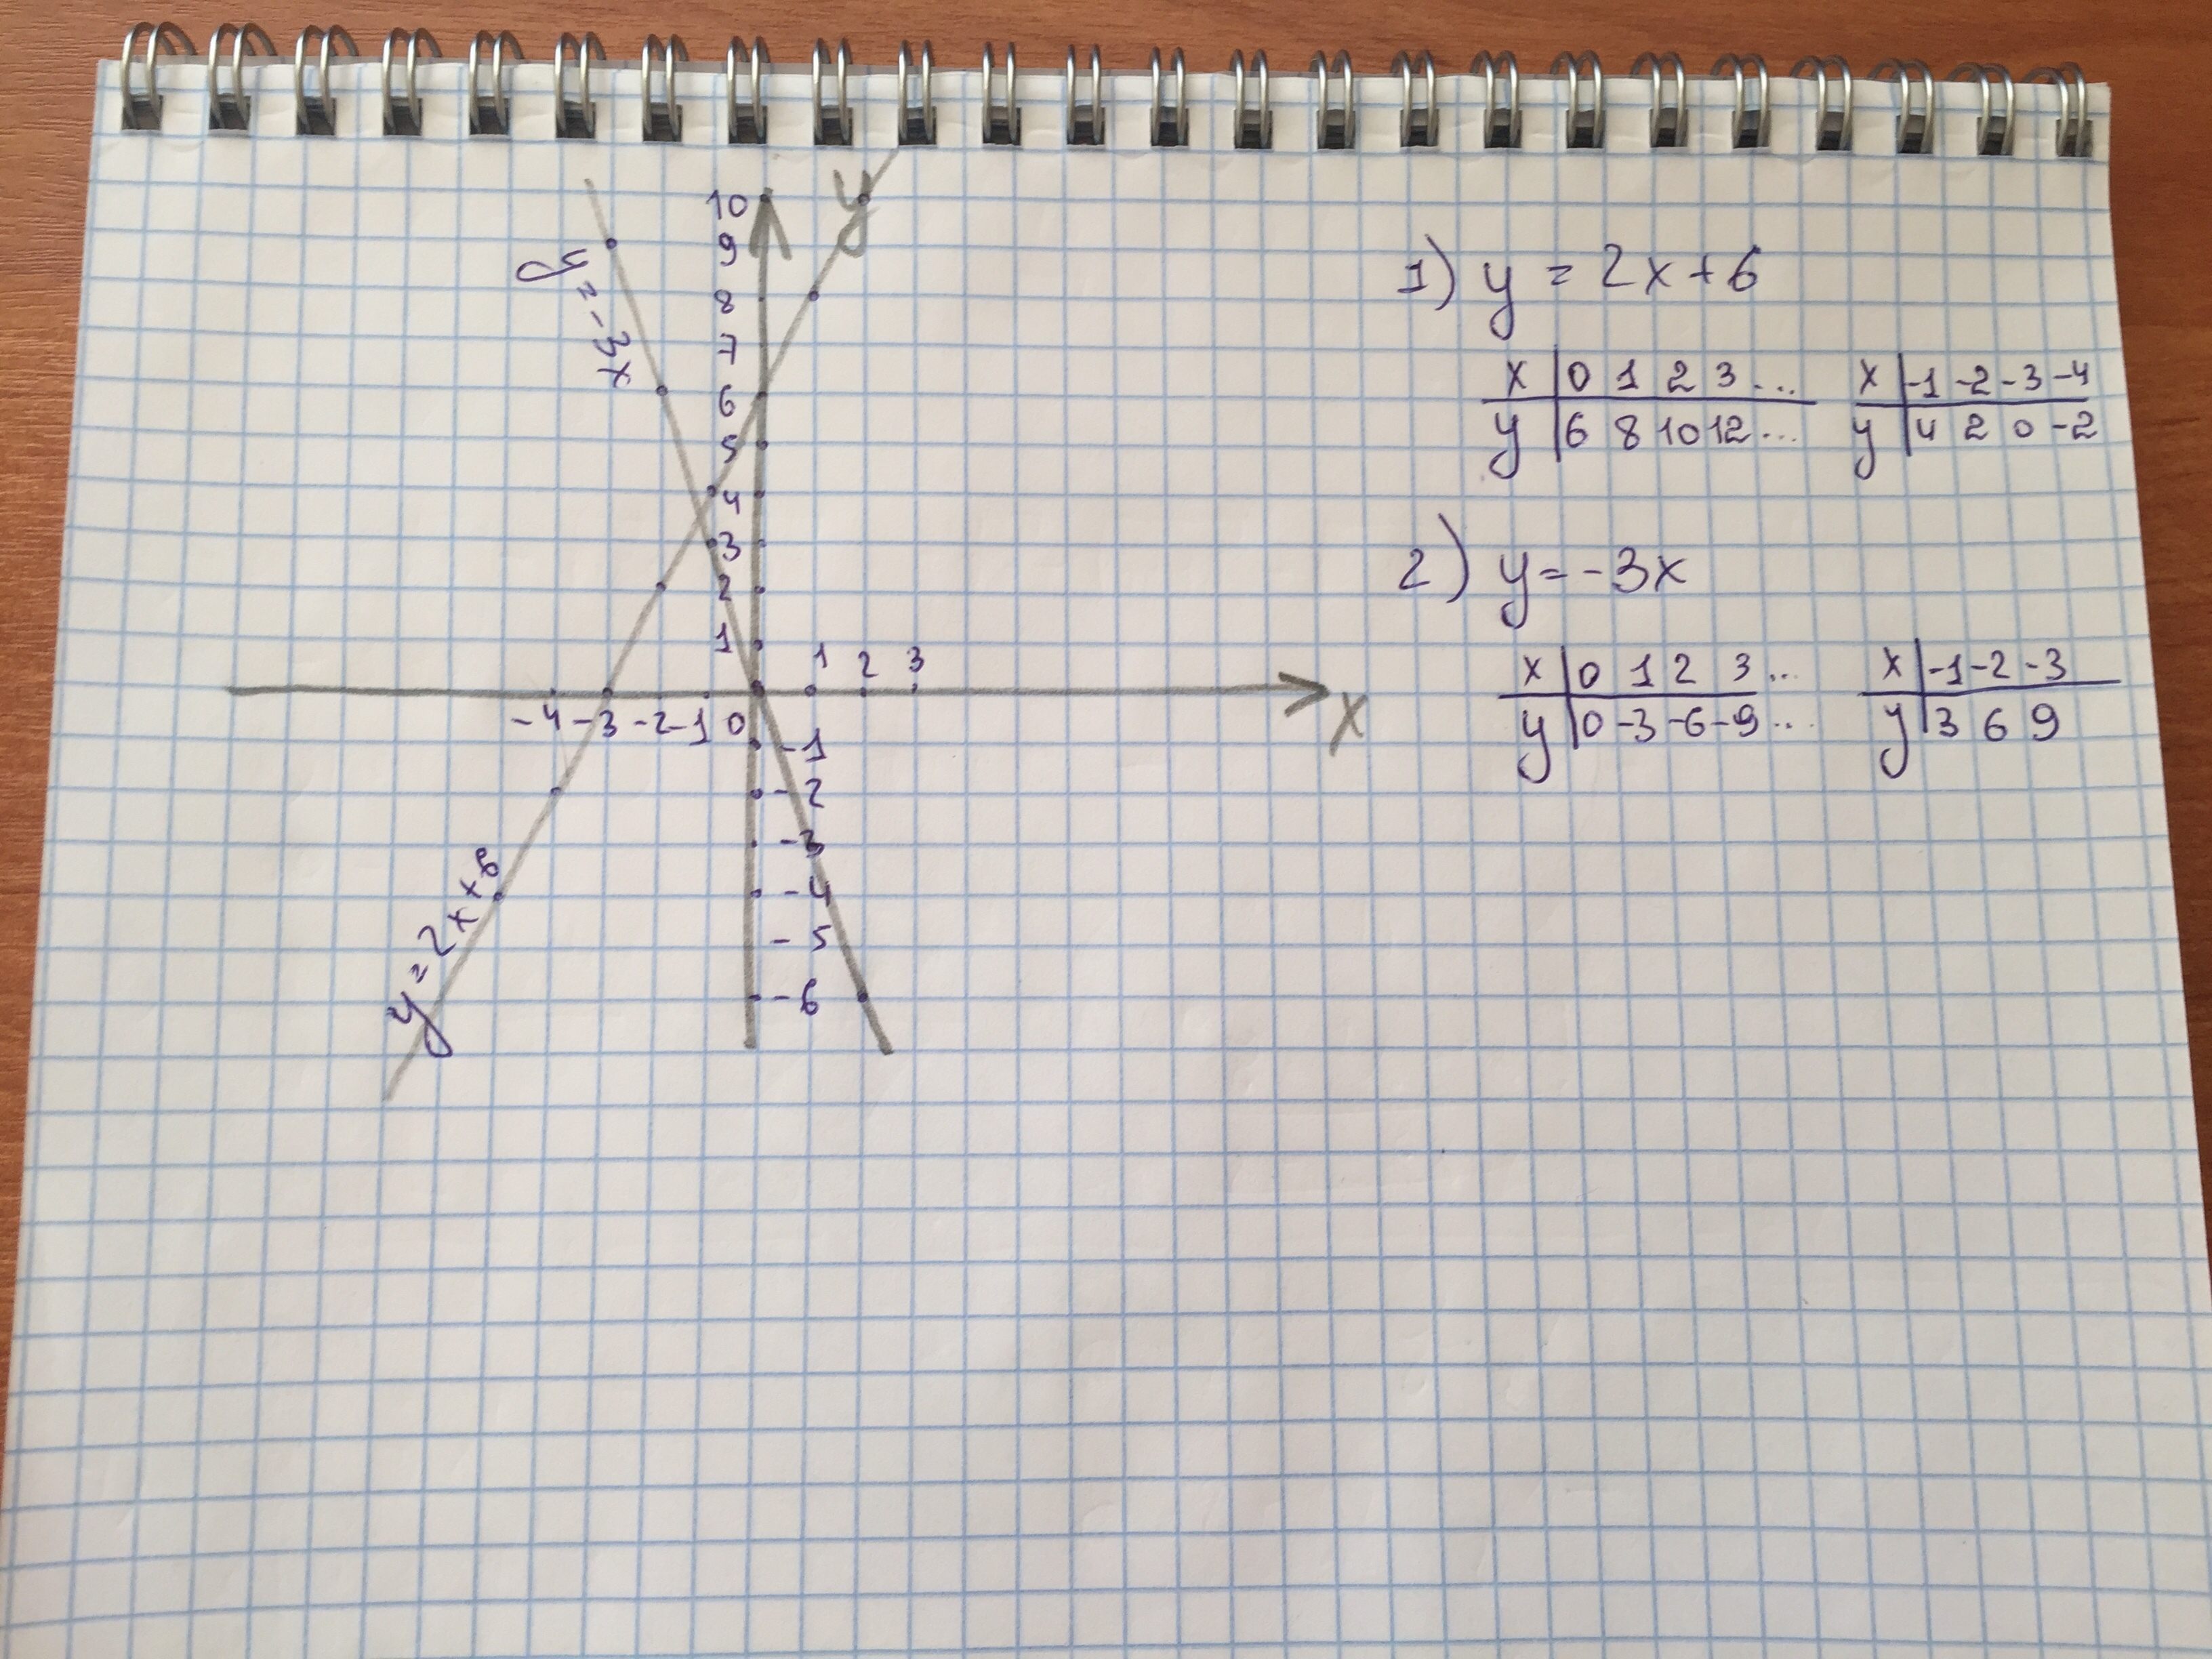 y
10
9
8
7
6
5
4
3
2
1
1 2 3
-4 -3 -2 -1 0
x
-1
-2
-3
-4
-5
-6
y = -3x
y = 2x+6
1) y = 2x+6
x | 0 1 2 3 ...
y | 6 8 10 12 ...
x | -1 -2 -3 -4
y | 4 2 0 -2
2) y = -3x
x | 0 1 2 3 ...
y | 0 -3 -6 -9 ...
x | -1 -2 -3
y | 3 6 9